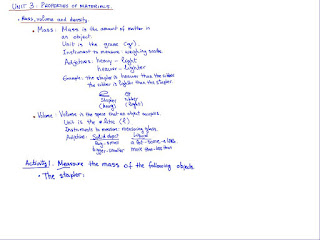 UNIT 3: PROPERTIES OF MATERIALS.
• Mass, volume and density.
• Mass: Mass is the amount of matter in
an object.
Unit is the grams (gr).
Instrument to measure: weighing scale.
Adjetives: heavy - light
heavier - lighter
Example: The stapler is heavier than the rubber
the rubber is lighter than the stapler.
Stapler rubber
(heavy) (light)
• Volume: Volume is the space that an object occupies.
Unit is the litre (l)
Instruments to measure: measuring glass.
Adjetive: Solid object liquid
big - small a lot - some - a little
bigger - smaller more than - less than
Activity 1. Measure the mass of the following objects.
• The stapler: